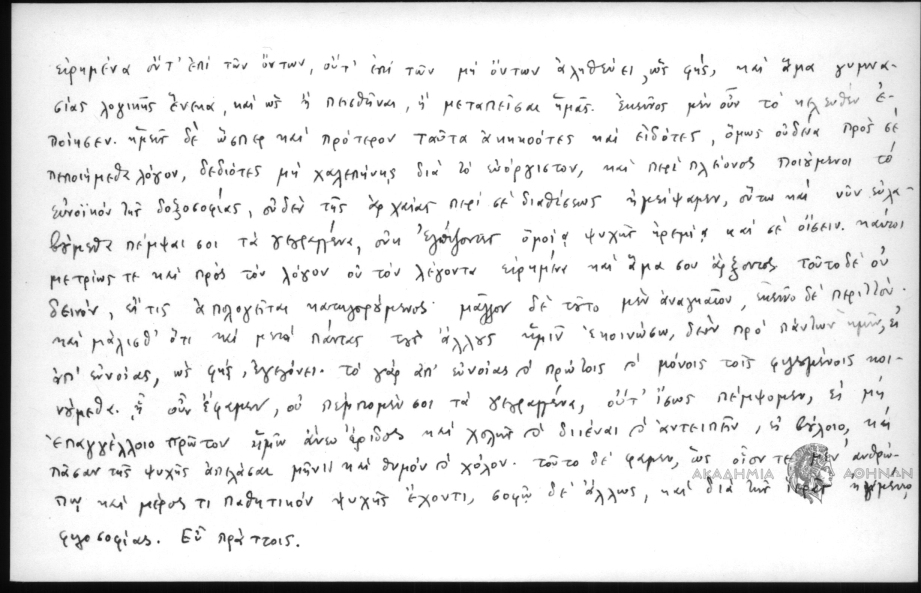 εἰρημένα οὔτ' ἐπὶ τῶν ὄντων, οὔτ' ἐπὶ τῶν μὴ ὄντων ἀληθεύει, ὡς φῄς, καὶ ἅμα γυμνα-
σίας λογικῆς ἕνεκα, καὶ ὡς ἢ πεισθῆναι, ἢ μεταπεῖσαι ἡμᾶς. Ἐκεῖνος μὲν οὖν τὸ κελευθὲν ἐ-
ποίησεν. ἡμεῖς δὲ ὥσπερ καὶ πρότερον ταῦτα ἀκηκοότες καὶ εἰδότες, ὅμως οὐδένα πρὸς σὲ
πεποιήμεθα λόγον, δεδιότες μὴ χαλεπήνῃς διὰ τὸ εὐόργιστον, καὶ περὶ πλείονος ποιούμενοι τὸ
εὐνοϊκὸν τῆς δοξοσοφίας, οὐδὲν τῆς ἀρχαίας περὶ σὲ διαθέσεως ἠμείψαμεν, οὕτω καὶ νῦν εὐλα-
βούμεθα πέμψαι σοι τὰ γεγραμμένα, οὐκ ἐλπίζοντες ὁμοίᾳ ψυχῆς ἠρεμίᾳ καὶ σὲ οἴσειν. καίτοι
μετρίως τε καὶ πρὸς τὸν λόγον οὐ τὸν λέγοντα εἰρημένα καὶ ἅμα σου ἄρξαντος τοῦτο δὲ οὐ
δεινόν, εἴ τις ἀπολογεῖται κατηγορούμενος· μᾶλλον δὲ τοῦτο μὲν ἀναγκαῖον, ἐκεῖνο δὲ περιττόν.
καὶ μάλισθ' ὅτι καὶ μετὰ πάντας τοὺς ἄλλους ἡμῖν ἐκοινώσω, δέον πρὸ πάντων ἡμῖν, εἰ
ἀπ' εὐνοίας, ὡς φῄς, ἐγεγόνει. τὸ γὰρ ἀπ' εὐνοίας καὶ πρώτοις καὶ μόνοις τοῖς φιλουμένοις κοι-
νούμεθα. ᾗ οὖν ἔφαμεν, οὐ πέμπομέν σοι τὰ γεγραμμένα, οὔτ' ἴσως πέμψομεν, εἰ μὴ
ἐπαγγέλλοιο πρῶτον ἡμῖν ἄνευ ἔριδος καὶ χολῆς καὶ διιέναι καὶ ἀντειπεῖν, εἰ βούλοιο, καὶ
πᾶσαν τῆς ψυχῆς ἀπελάσαι μῆνιν καὶ θυμὸν καὶ χόλον. τοῦτο δέ φαμεν, ὡς οἷόν τε μὲν ἀνθρώ-
πῳ καὶ μέρος τι παθητικὸν ψυχῆς ἔχοντι, σοφῷ δὲ ἄλλως, καὶ διὰ τὴν ἱερὰν
φιλοσοφίας. Εὖ πράττοις.
ΑΚΑΔΗΜΙΑ ΑΘΗΝΩΝ